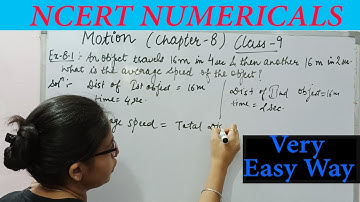 NCERT NUMERICALS
Motion (Chapter-8) Class-9
Ex-8.1:- An object travels 16m in 4sec & then another 16 m in 2sec.
What is the average speed of the object?
Solⁿ:- Dist of Ist object = 16m
time = 4 sec.
Dist of IInd object = 16m
time = 2 sec.
speed = Total
Very
Easy Way